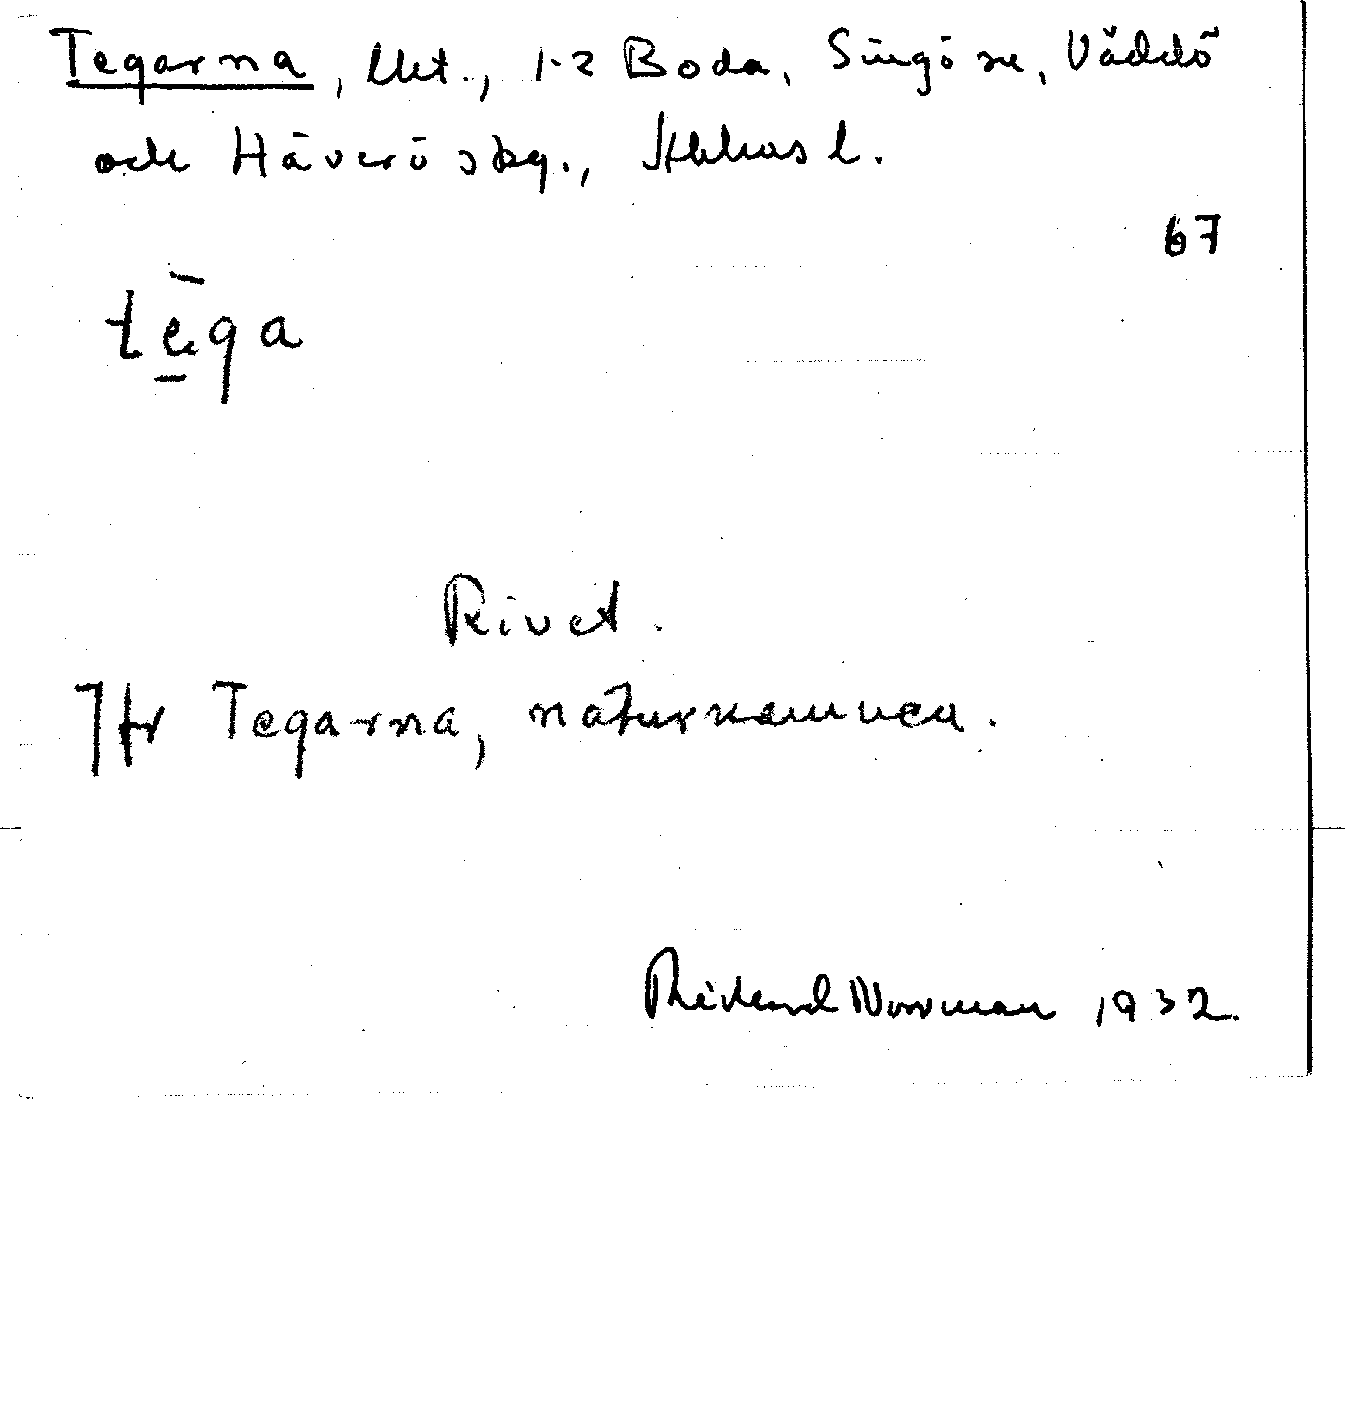 Tegarna, lht., 1-2 Boda, Singö sn, Väddö
och Häverö skg., Sthlms l.
67
tega
Rivet.
Jfr Tegarna, naturnamnen.
Rickard Norrman 1932.